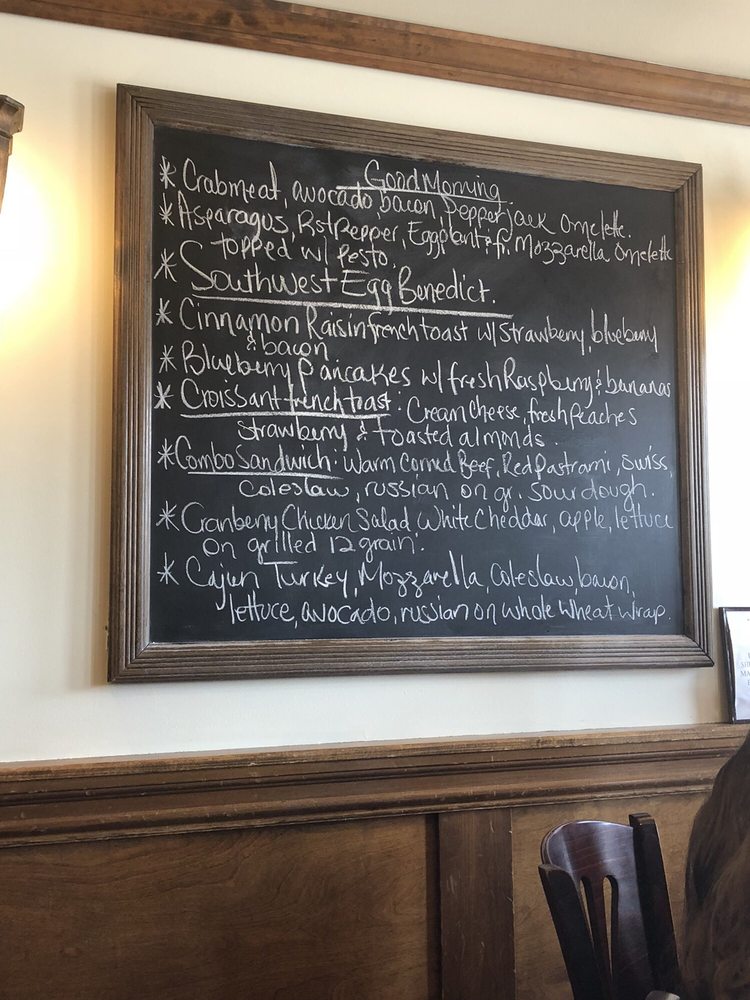 Good Morning
* Crabmeat, avocado, bacon, pepperjack omelette.
* Asparagus, Rst Pepper, Eggplant & fr. Mozzarella omelette
topped w/ pesto.
* Southwest Egg Benedict.
* Cinnamon Raisin french toast w/ Strawberry, blueberry
& bacon
* Blueberry Pancakes w/ fresh Raspberry & bananas
* Croissant french toast: Cream Cheese, fresh Peaches
Strawberry & Toasted almonds.
* Combo Sandwich: Warm Corned Beef, Red Pastrami, swiss,
coleslaw, russian on gr. sourdough.
* Cranberry Chicken Salad White Cheddar, apple, lettuce
on grilled 12 grain.
* Cajun Turkey, Mozzarella, coleslaw, bacon,
lettuce, avocado, russian on whole wheat wrap.